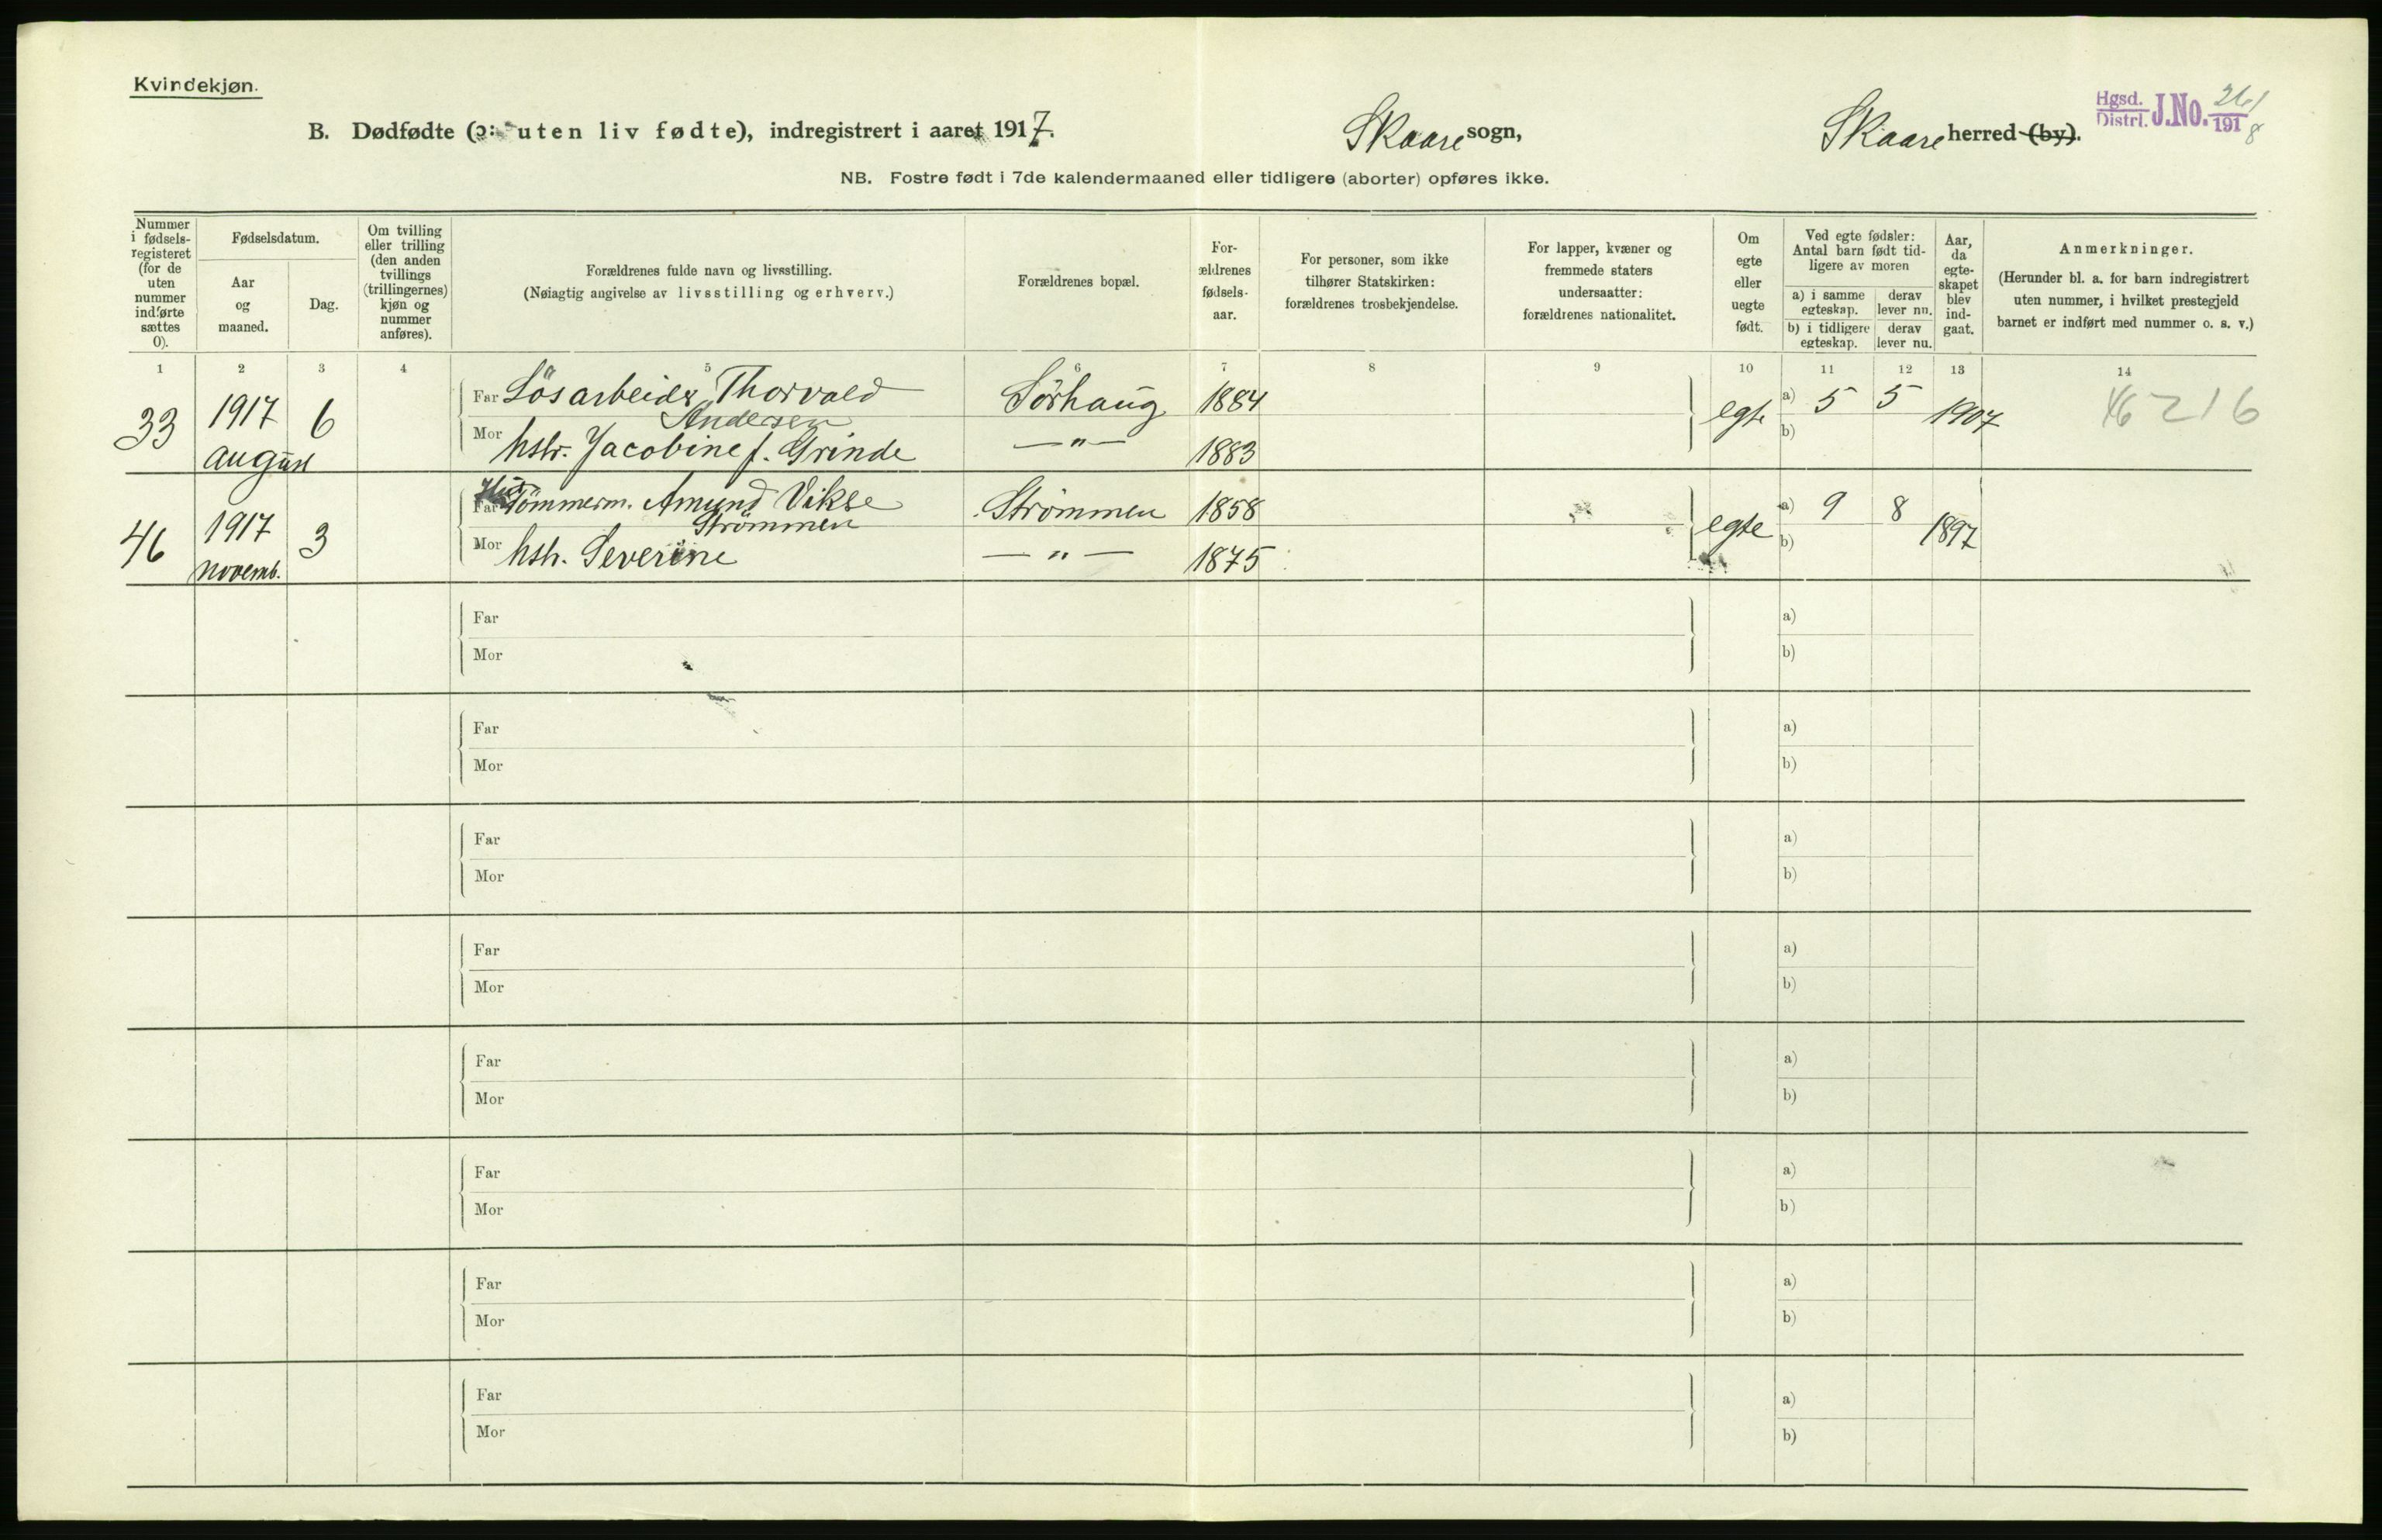 Kvindekjøn.
B. Dødfødte (ɔ: uten liv fødte), indregistrert i aaret 1917.
Skaare sogn,
Skaare herred (by).
Hgsd. Distrl. J.No. 261/1918
NB. Fostre født i 7de kalendermaaned eller tidligere (aborter) opføres ikke.
Nummer i fødsels-registeret (for de uten nummer indførte sættes 0).
Fødselsdatum.
Aar og maaned.
Dag.
Om tvilling eller trilling (den anden tvillings (trillingernes) kjøn og nummer anføres).
Forældrenes fulde navn og livsstilling.
(Nøiagtig angivelse av livsstilling og erhverv.)
Forældrenes bopæl.
For-ældrenes fødsels-aar.
For personer, som ikke tilhører Statskirken: forældrenes trosbekjendelse.
For lapper, kvæner og fremmede staters undersaatter: forældrenes nationalitet.
Om egte eller uegte født.
Ved egte fødsler: Antal barn født tid-ligere av moren
a) i samme egteskap.
derav lever nu.
b) i tidligere egteskap.
derav lever nu.
Aar, da egte-skapet blev ind-gaat.
Anmerkninger.
(Herunder bl. a. for barn indregistrert uten nummer, i hvilket prestegjeld barnet er indført med nummer o. s. v.)
1 2 3 4 5 6 7 8 9 10 11 12 13 14
33 1917 august 6
Far Lösarbeider Thorvald Andersen Sörhaug 1884
Mor hstr. Jacobine f. Grinde — " — 1883
egte a) 5 5 1907
b)
216
46 1917 novemb. 3
Far Tömmerm. Amund Vikse Strömmen Strömmen 1858
Mor hstr. Severine — " — 1875
egte a) 9 8 1897
b)
Far a)
Mor b)
Far a)
Mor b)
Far a)
Mor b)
Far a)
Mor b)
Far a)
Mor b)
Far a)
Mor b)
Far a)
Mor b)
Far a)
Mor b)